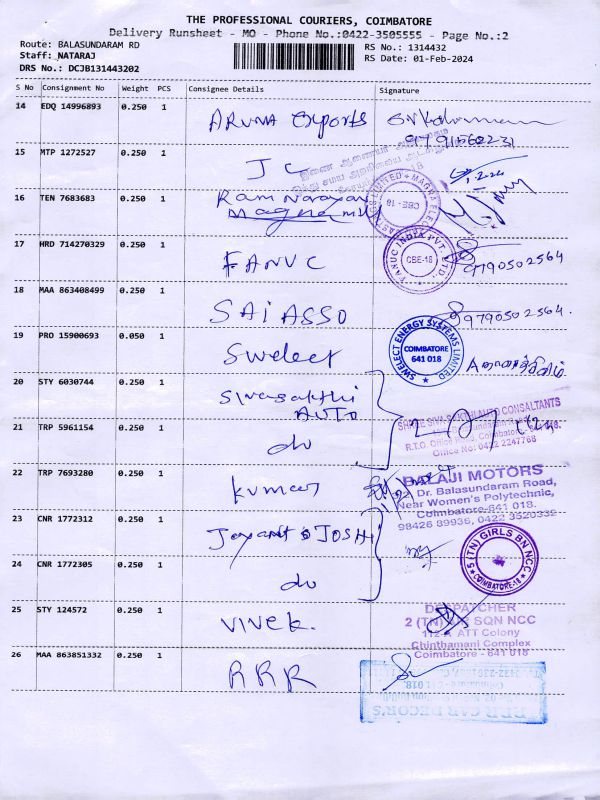 THE PROFESSIONAL COURIERS, COIMBATORE
Delivery Runsheet - MO - Phone No.:0422-3505555 - Page No.:2
Route: BALASUNDARAM RD
RS No.: 1314432
Staff: NATARAJ
RS Date: 01-Feb-2024
DRS No.: DCJB131443202
S No Consignment No Weight PCS Consignee Details Signature
14 EDQ 14996893 0.250 1 ARUNA Exports
9791560231
15 MTP 1272527 0.250 1 J C
16 TEN 7683683 0.250 1 Ram Narayan
Magna
CBE-18
17 HRD 714270329 0.250 1 FANUC
FANUC INDIA PVT. LTD.
CBE-18
9790502564
18 MAA 863408499 0.250 1 SAI ASSO 9790502564.
19 PRO 15900693 0.050 1 Swelect
SWELECT ENERGY SYSTEMS LIMITED
COIMBATORE
641 018
20 STY 6030744 0.250 1 Sivasakthi
AUTO
21 TRP 5961154 0.250 1 do
SHREE SIVA SAKTHI AUTO CONSULTANTS
R.T.O. Office Road, Coimbatore
Office No: 0422 2247768
22 TRP 7693280 0.250 1 Kumar
BALAJI MOTORS
Dr. Balasundaram Road,
Near Women's Polytechnic,
Coimbatore-641 018.
98426 89936, 0422 3520332
23 CNR 1772312 0.250 1 Jayant JOSHI
5 (TN) GIRLS BN NCC
COIMBATORE-18
24 CNR 1772305 0.250 1 do
25 STY 124572 0.250 1 VIVEK.
DESPATCHER
2 (TN) SQN NCC
112-A ATT Colony
Chinthamani Complex
Coimbatore - 641 018
26 MAA 863851332 0.250 1 RRR
RRR CAR DECOR'S